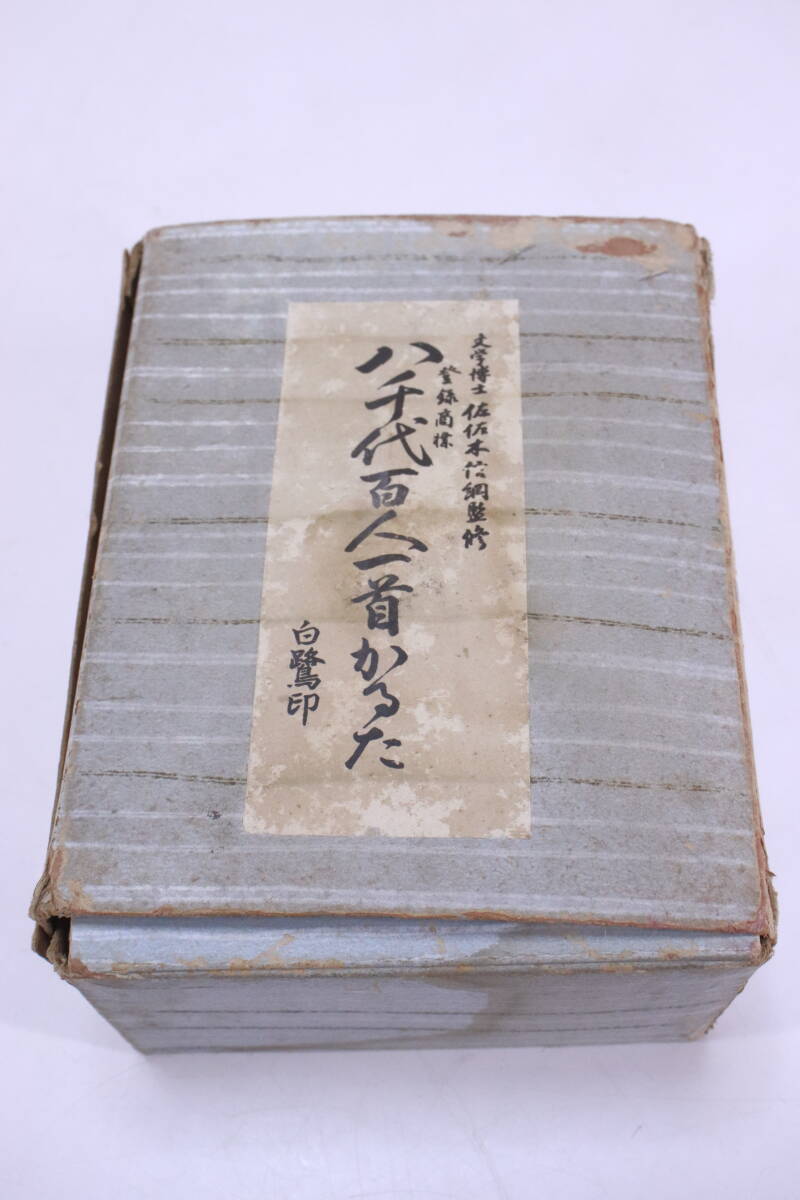 文学博士 佐佐木信綱監修
登録商標
八千代百人一首かるた
白鷺印